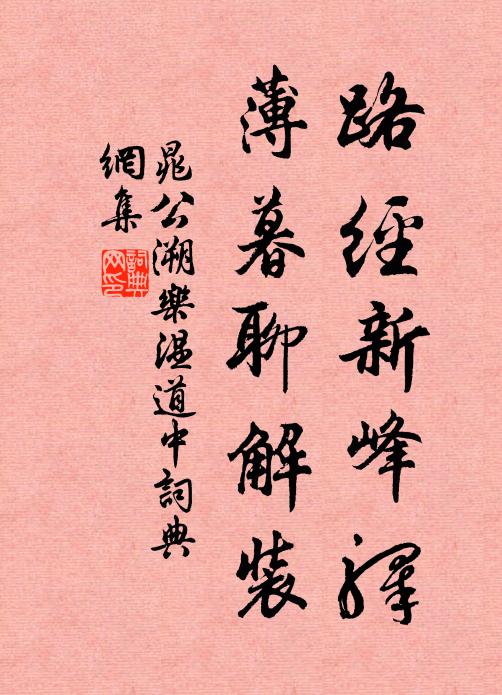 路經新峰驛
薄暮聊解裝
晁公溯樂溫道中詞典
網集
詞典網印